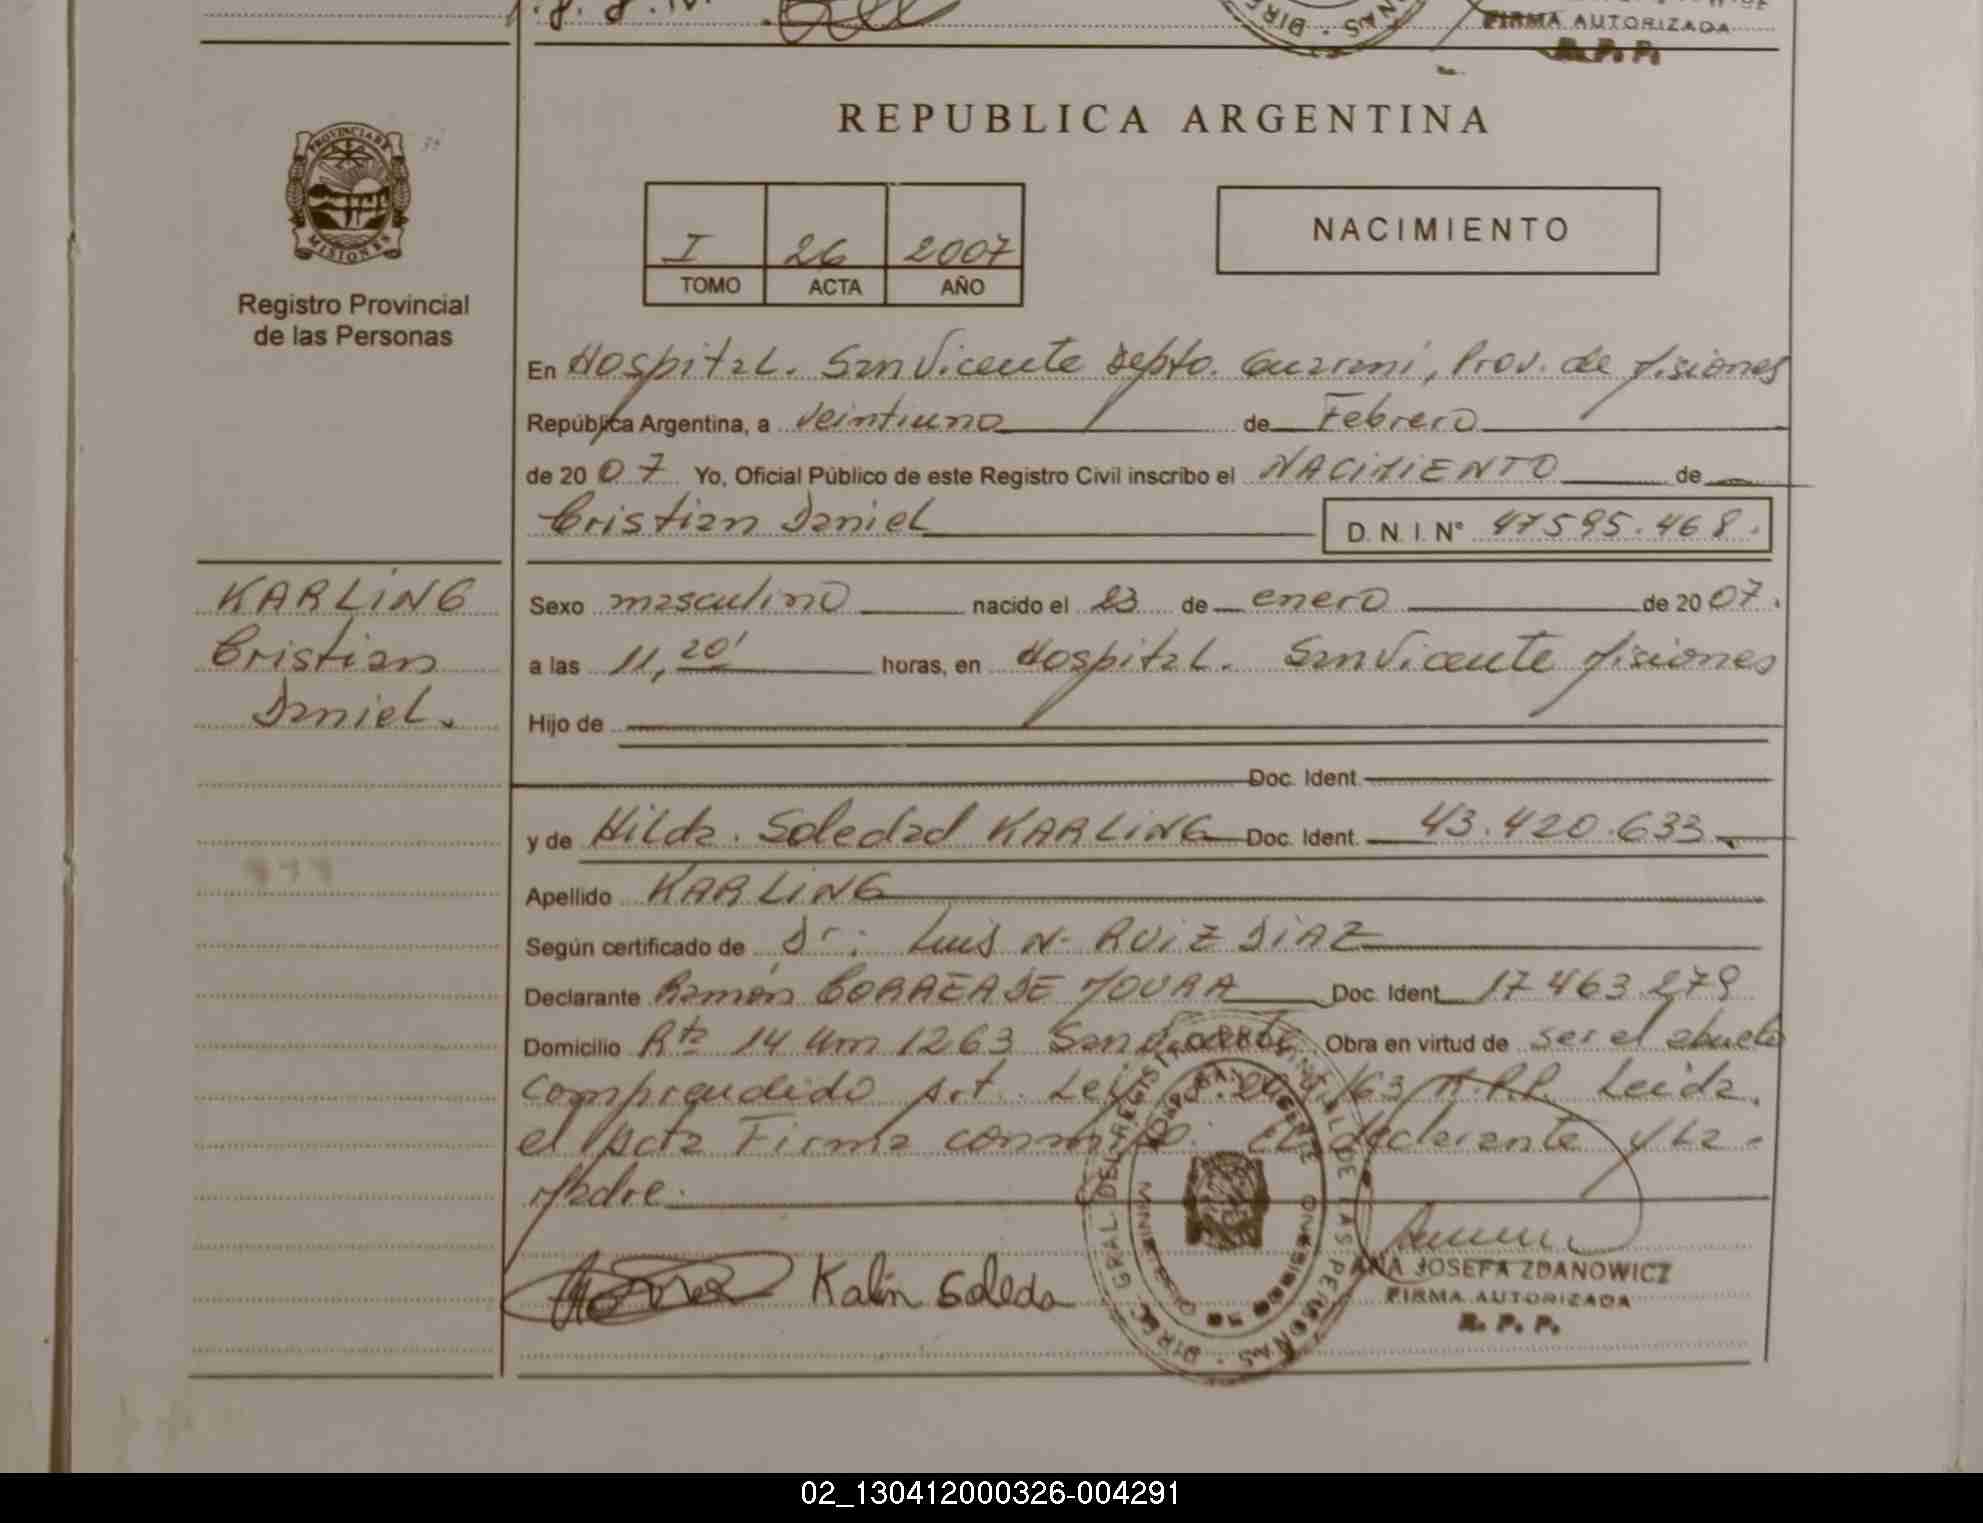 FIRMA AUTORIZADA
R. P. P.
PROVINCIA DE
MISIONES
Registro Provincial
de las Personas
REPUBLICA ARGENTINA
I 26 2007
TOMO ACTA AÑO
NACIMIENTO
En Hospital. San Vicente Depto. Guarani, Prov. de Misiones
República Argentina, a veintiuno de Febrero
de 2007 Yo, Oficial Público de este Registro Civil inscribo el NACIMIENTO de
Cristian Daniel D. N. I. N° 47595.468.
KARLING
Cristian
Daniel.
Sexo masculino nacido el 23 de enero de 2007.
a las 11,20' horas, en Hospital. San Vicente Misiones
Hijo de
Doc. Ident.
y de Hilda. Soledad KARLING Doc. Ident. 43.420.633
Apellido KARLING
Según certificado de Dr: Luis N. RUIZ DIAZ
Declarante Ramón CORREA DE MOURA Doc. Ident. 17463.279
Domicilio Rta 14 Km 1263 San Vicente Obra en virtud de ser el abuelo
comprendido Art. Ley 163 R.P.P. Leida,
el Acta Firma conmigo. El declarante y La
Madre.
Kalin Soleda
DIRE. GRAL. DEL REGISTRO DE LAS PERSONAS
ANA JOSEFA ZDANOWICZ
FIRMA AUTORIZADA
R. P. P.
02_130412000326-004291